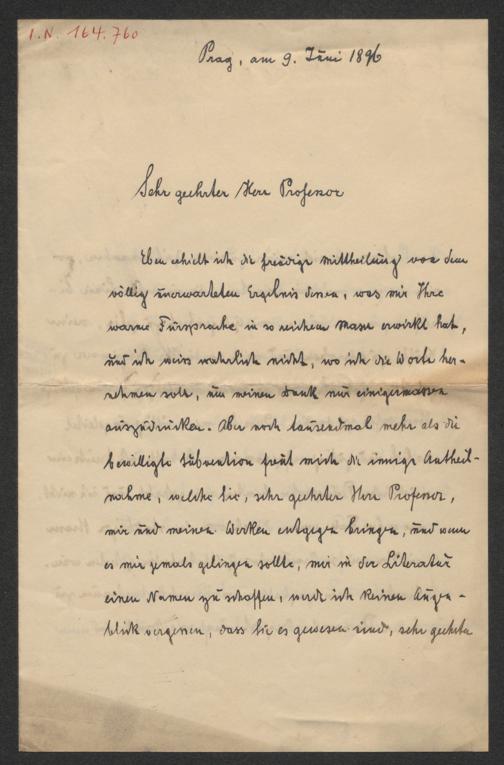 I.N. 164.760
Prag, am 9. Juni 1896
Sehr geehrter Herr Professor
Eben erhielt ich die freudige Mittheilung von dem
völlig unerwarteten Ergebnis dessen, was mir Ihre
warme Fürsprache in so reichem Masse erwirkt hat,
und ich weiss wahrlich nicht, wo ich die Worte her-
nehmen soll, um meinen Dank nur einigermassen
auszudrücken. Aber noch tausendmal mehr als die
bewilligte Subvention freut mich die innige Antheil-
nahme, welche Sie, sehr geehrter Herr Professor,
mir und meinen Werken entgegen bringen, und wenn
es mir jemals gelingen sollte, mir in der Literatur
einen Namen zu schaffen, werde ich keinen Augen-
blick vergessen, dass Sie es gewesen sind, sehr geehrter